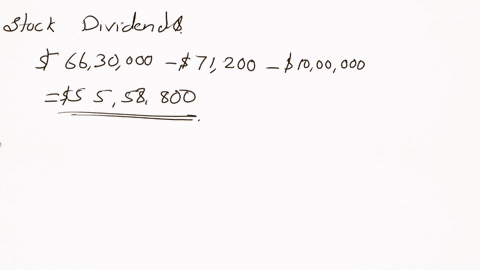 Stock Dividends
$ 66,30,000 - $ 71,200 - $ 10,00,000
= $ 55,58,800